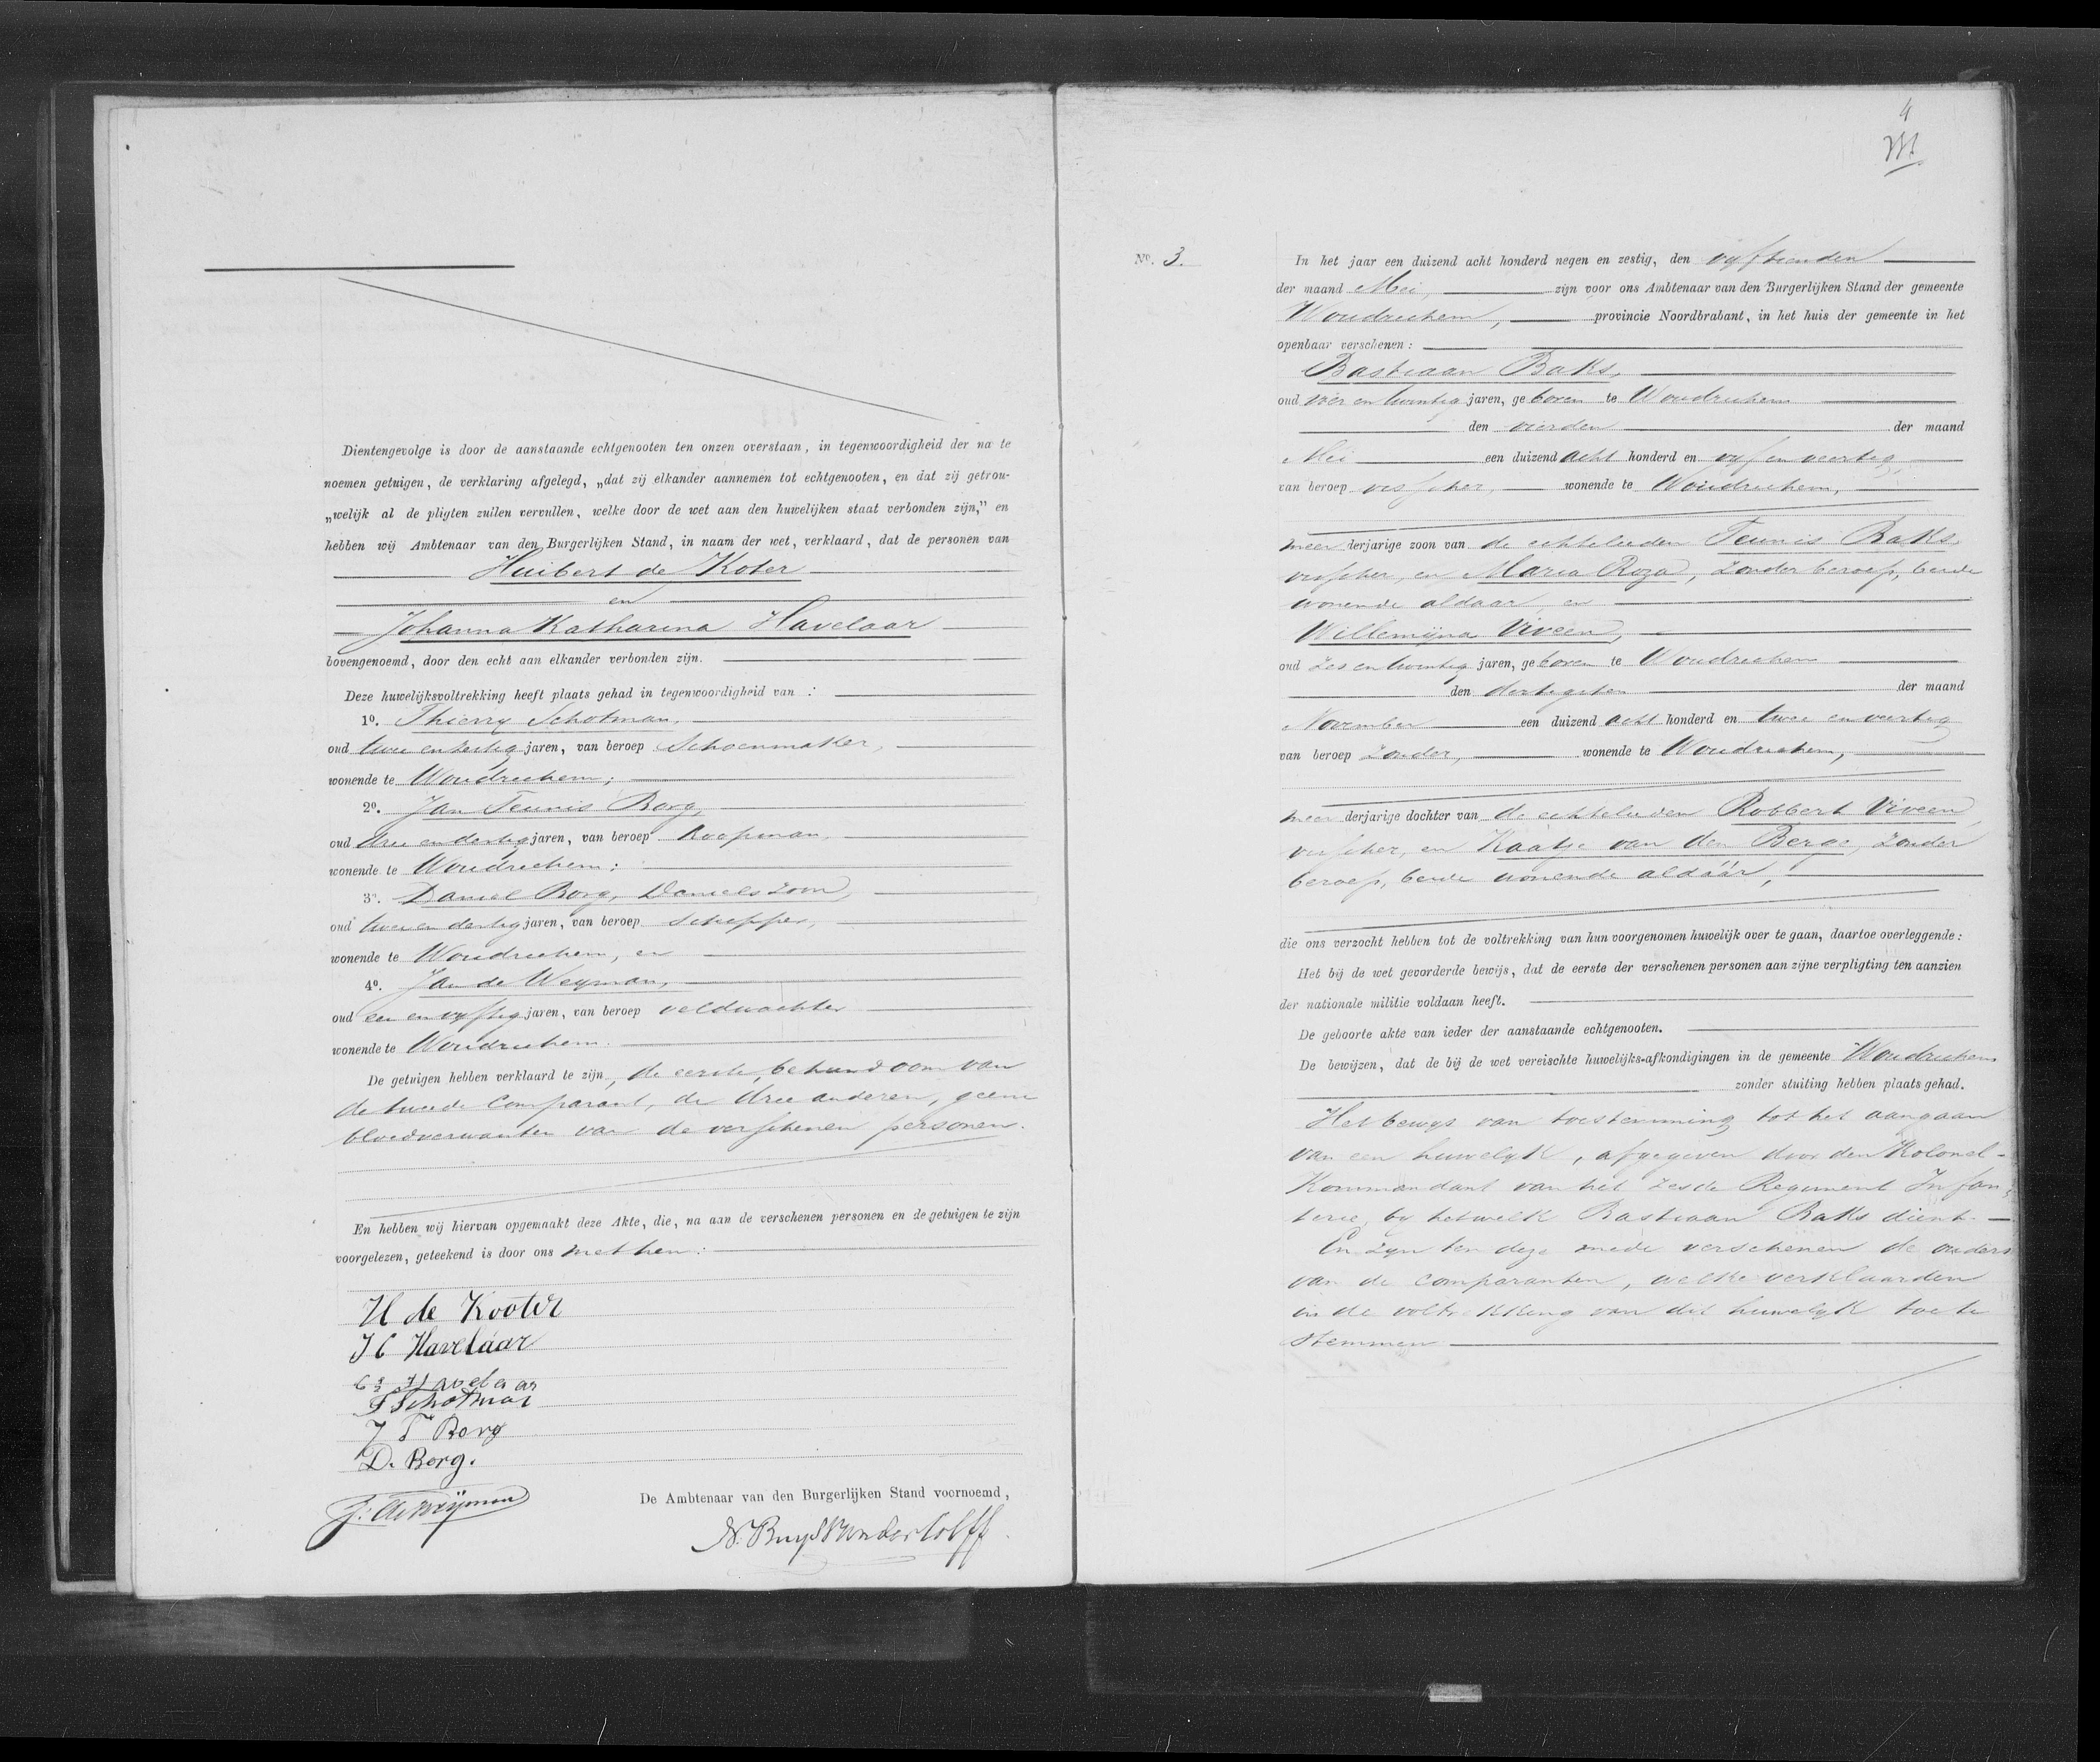 Dientengevolge is door de aanstaande echtgenooten ten onzen overstaan, in tegenwoordigheid der na te
noemen getuigen, de verklaring afgelegd, „dat zij elkander aannemen tot echtgenooten, en dat zij getrou-
„welijk al de pligten zullen vervullen, welke door de wet aan den huwelijken staat verbonden zijn," en
hebben wij Ambtenaar van den Burgerlijken Stand, in naam der wet, verklaard, dat de personen van
Huibert de Koter
en
Johanna Katharina Havelaar
bovengenoemd, door den echt aan elkander verbonden zijn.
Deze huwelijksvoltrekking heeft plaats gehad in tegenwoordigheid van :
1º. Thierry Schotman,
oud twee en jaren, van beroep Schoenmaker,
wonende te Woudrichem;
2º. Jan Teunis Borg,
oud drie en dertig jaren, van beroep Koopman,
wonende te Woudrichem;
3º. Daniel Borg, Daniels zoon,
oud twee en dertig jaren, van beroep Schipper,
wonende te Woudrichem, en
4º. Jan de Weyman,
oud een en vyftig jaren, van beroep veldwachter
wonende te Woudrichem.
De getuigen hebben verklaard te zijn, de eerste, behuwd oom van
de tweede Comparant, de drie anderen, geene
bloedverwanten van de verschenen personen.
En hebben wij hiervan opgemaakt deze Akte, die, na aan de verschenen personen en de getuigen te zijn
voorgelezen, geteekend is door ons met hen:
H de Kooter
J C Havelaar
Havelaar
T Schotman
J T Borg
D. Borg.
J. de Weijman
De Ambtenaar van den Burgerlijken Stand voornoemd,
4
Nº. 3.
In het jaar een duizend acht honderd negen en zestig, den vyftienden
der maand Mei, zijn voor ons Ambtenaar van den Burgerlijken Stand der gemeente
Woudrichem, provincie Noordbrabant, in het huis der gemeente in het
openbaar verschenen :
Bastiaan Baks,
oud vier en twintig jaren, geboren te Woudrichem
den vierden der maand
Mei een duizend acht honderd en vyf en veertig,
van beroep visscher, wonende te Woudrichem,
meerderjarige zoon van de echtelieden Teunis Baks,
visscher, en Maria Roza, zonder beroep, beide
wonende aldaar, en
Willemijna Viveen,
oud zes en twintig jaren, geboren te Woudrichem
den dertigsten der maand
November een duizend acht honderd en twee en veertig
van beroep zonder, wonende te Woudrichem,
meerderjarige dochter van de echtelieden Robbert Viveen,
visscher, en Kaatje van den Berge, zonder
beroep, beide wonende aldáár,
die ons verzocht hebben tot de voltrekking van hun voorgenomen huwelijk over te gaan, daartoe overleggende :
Het bij de wet gevorderde bewijs, dat de eerste der verschenen personen aan zijne verpligting ten aanzien
der nationale militie voldaan heeft.
De geboorte akte van ieder der aanstaande echtgenooten.
De bewijzen, dat de bij de wet vereischte huwelijks-afkondigingen in de gemeente Woudrichem
zonder stuiting hebben plaats gehad.
Het bewys van toestemming tot het aangaan
van een huwelyk, afgegeven door den Kolonel-
Kommandant van het zesde Regiment Infan-
terie, by hetwelk Bastiaan Baks dient.
En zyn ten deze mede verschenen de ouders
van de comparanten, welke verklaarden
in de voltrekking van dit huwelyk toe te
stemmen